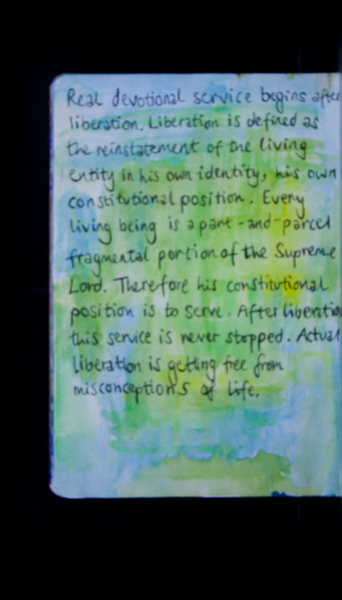 Real devotional service begins after
liberation. Liberation is defined as
the reinstatement of the living
entity in his own identity, his own
constitutional position. Every
living being is a part-and-parcel
fragmental portion of the Supreme
Lord. Therefore his constitutional
position is to serve. After liberatio
this service is never stopped. Actual
liberation is getting free from
misconceptions of life.